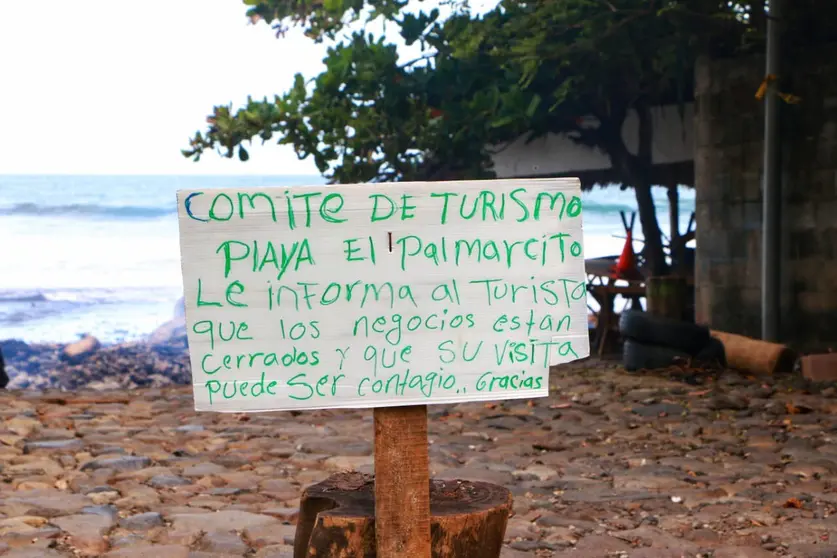 COMITE DE TURISMO
PLAYA El Palmarcito
Le informa al Turista
que los negocios están
cerrados y que su visita
puede ser contagio.. Gracias